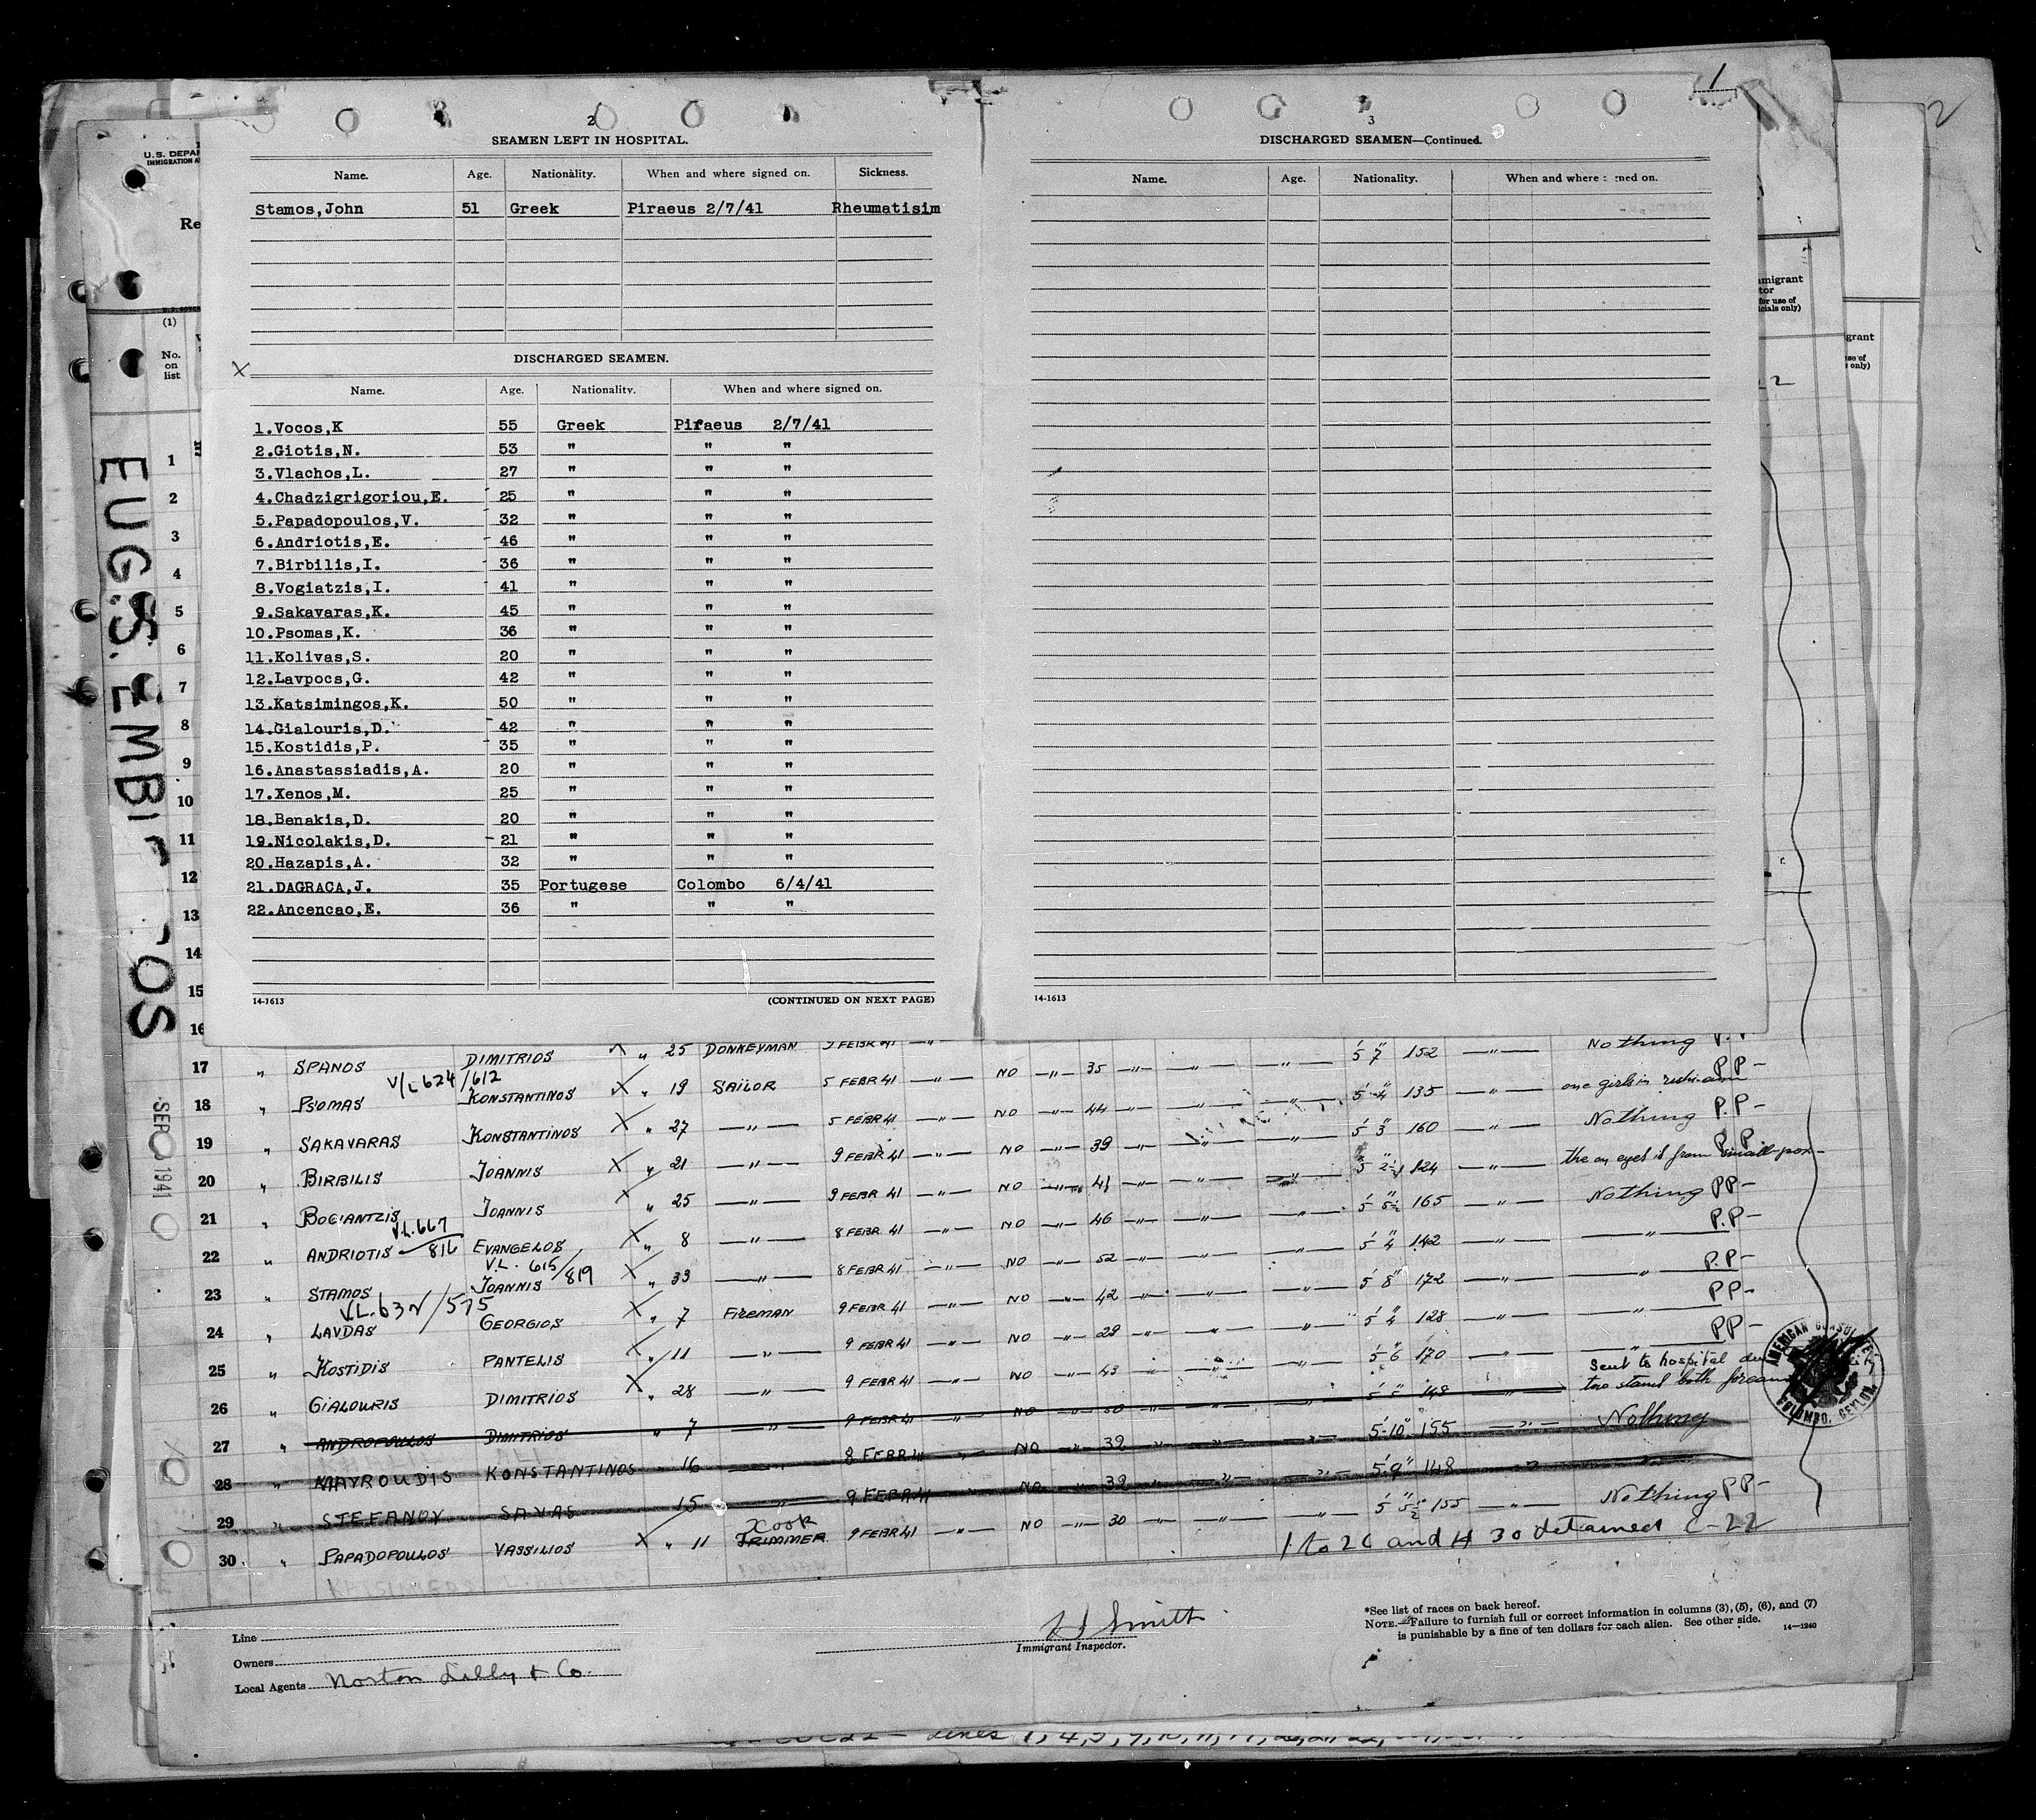 1
2
2
SEAMEN LEFT IN HOSPITAL.
Name. Age. Nationality. When and where signed on. Sickness.
Stamos,John 51 Greek Piraeus 2/7/41 Rheumatisim
DISCHARGED SEAMEN.
X
Name. Age. Nationality. When and where signed on.
1.Vocos,K 55 Greek Piraeus 2/7/41
2.Giotis,N. 53 " " "
3.Vlachos,L. 27 " " "
4.Chadzigrigoriou,E. 25 " " "
5.Papadopoulos,V. 32 " " "
6.Andriotis,E. 46 " " "
7.Birbilis,I. 36 " " "
8.Vogiatzis,I. 41 " " "
9.Sakavaras,K. 45 " " "
10.Psomas,K. 36 " " "
11.Kolivas,S. 20 " " "
12.Lavpocs,G. 42 " " "
13.Katsimingos,K. 50 " " "
14.Gialouris,D. 42 " " "
15.Kostidis,P. 35 " " "
16.Anastassiadis,A. 20 " " "
17.Xenos,M. 25 " " "
18.Benakis,D. 20 " " "
19.Nicolakis,D. 21 " " "
20.Hazapis,A. 32 " " "
21.DAGRACA,J. 35 Portugese Colombo 6/4/41
22.Ancencao,E. 36 " " "
14-1613 (CONTINUED ON NEXT PAGE)
3
DISCHARGED SEAMEN—Continued.
Name. Age. Nationality. When and where signed on.
14-1613
U.S. DEPA
IMMIGRATION A
Re
(1)
No.
on
list
1
2
3
4
5
6
7
8
9
10
11
12
13
14
15
16
EUGS. EMBI OS
SEP 1941
migrant
tor
for use of
icials only)
grant
use of
s only)
17 " SPANOS DIMITRIOS X " 25 DONKEYMAN 9 FEBR 41 —"— NO —"— 35 —"— —"— —"— 5' 7" 152 —"— Nothing P.P
V/L 624/612
18 " PSOMAS KONSTANTINOS X " 19 SAILOR 5 FEBR 41 —"— NO —"— 44 —"— —"— —"— 5' 4" 135 —"— one girl in P.P—
19 " SAKAVARAS KONSTANTINOS X " 27 —"— 5 FEBR 41 —"— NO —"— 39 —"— —"— —"— 5' 3" 160 —"— Nothing P.P—
20 " BIRBILIS IOANNIS X " 21 —"— 9 FEBR 41 —"— NO —"— 41 —"— —"— —"— 5' 2½ 124 —"— the on eyes is from small-pox— P.P
21 " BOGIANTZIS IOANNIS X " 25 —"— 9 FEBR 41 —"— NO —"— 46 —"— —"— —"— 5' 5½" 165 —"— Nothing PP—
V.L. 667/816
22 " ANDRIOTIS EVANGELOS X " 8 —"— 8 FEBR 41 —"— NO —"— 52 —"— —"— —"— 5' 4" 142 —"— —"— P.P—
V.L. 615/819
23 " STAMOS IOANNIS X " 33 —"— 8 FEBR 41 —"— NO —"— 42 —"— —"— —"— 5' 8" 172 —"— —"— P.P—
V.L. 632/575
24 " LAVDAS GEORGIOS X " 7 FIREMAN 9 FEBR 41 —"— NO —"— 29 —"— —"— —"— 5' 4" 128 —"— —"— PP—
25 " KOSTIDIS PANTELIS X " 11 —"— 9 FEBR 41 —"— NO —"— 43 —"— —"— —"— 5' 6" 170 —"— —"— PP—
26 " GIALOURIS DIMITRIOS X " 28 —"— 9 FEBR 41 —"— NO —"— 50 —"— —"— —"— 5' 5" 148 —"— sent to hospital
two stand both forearm
27 " ANDROPOULOS DIMITRIOS " 7 —"— 9 FEBR 41 —"— NO —"— 32 —"— —"— —"— 5-10" 155 —"— Nothing
28 " MAYROUDIS KONSTANTINOS 16 —"— 8 FEBR 41 —"— NO —"— 32 —"— —"— —"— 5'9" 148 —"—
29 " STEFANOY SAVAS 15 —"— 9 FEBR 41
Xook
30 " PAPADOPOULOS VASSILIOS X " 11 TRIMMER 9 FEBR 41 —"— NO —"— 30 —"— —"— —"— 5' 5½" 155 —"— Nothing PP—
1 to 26 and # 30 detained C-22
AMERICAN CONSULATE
COLOMBO, CEYLON.
Line
Owners
Local Agents Norton Lilly & Co.
H Smith
Immigrant Inspector.
*See list of races on back hereof.
NOTE.—Failure to furnish full or correct information in columns (3), (5), (6), and (7)
is punishable by a fine of ten dollars for each alien. See other side. 14—1240